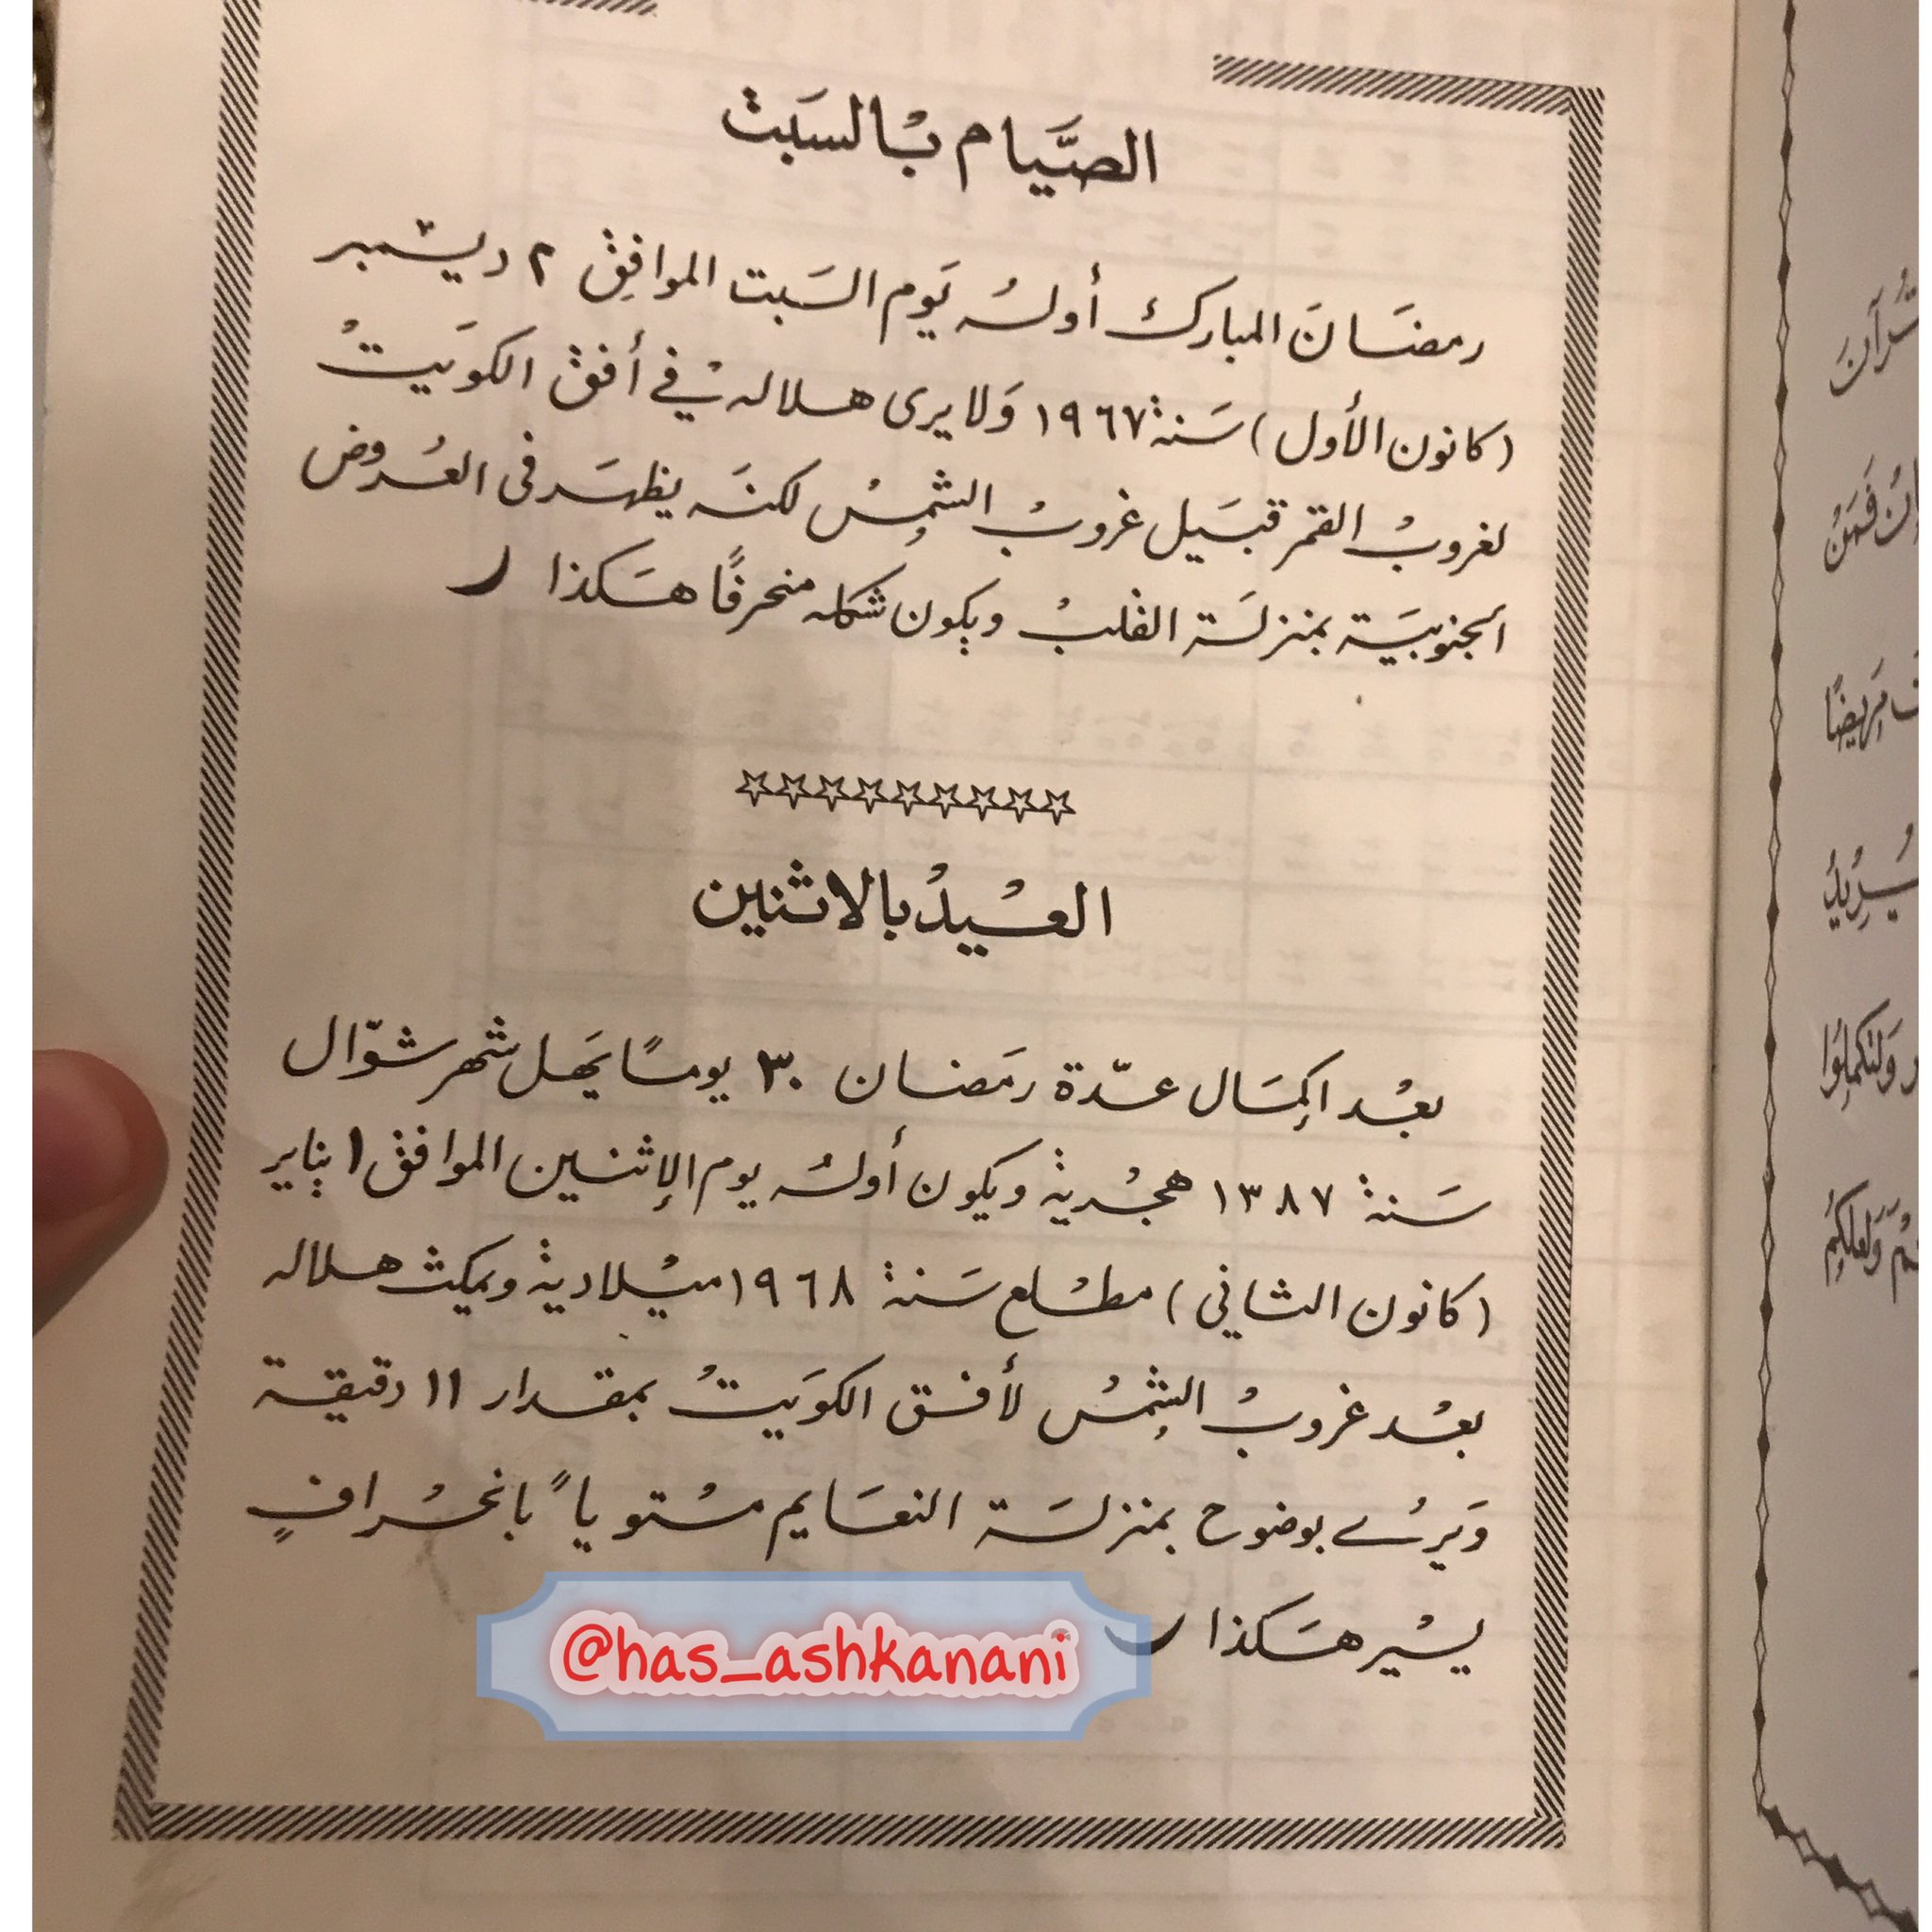 الصَّيام بْالسَبت
رمضَان المبارك أولهُ يَوم السَبت الموافِق ٢ ديسمبر
(كانون الأول) سَنة ١٩٦٧ وَلا يرى هلاله في أفق الكويَت
لغروب القمر قبيَل غروب الشمس لكنَه يظهَر في العُروض
الجنوبيَة بمنزلَة القلب ويكون شكله منحرفًا هَكذا
☆☆☆☆☆☆☆☆☆
العيدُ بالاثنين
بعْد اكمَال عدّة رمَضان ٣٠ يومًا يَهل شهر شوّال
سَنة ١٣٨٧ هجْرية ويكون أولهُ يوم الإثنين الموافق ١ يناير
(كانون الثاني) مطلع سَنة ١٩٦٨ ميْلادية ويمكث هلاله
بعْد غروب الشمس لأفق الكويَت بمقدار ١١ دقيقة
وَيرى بوضوح بمنزلَة النعَايم مسْتوياً بانحْرافٍ
يسْير هَكذا
@has_ashkanani
قُرآن
مَريضًا
يُرِيدُ
وَلتكمِلُوا
وَلَعلكُمْ